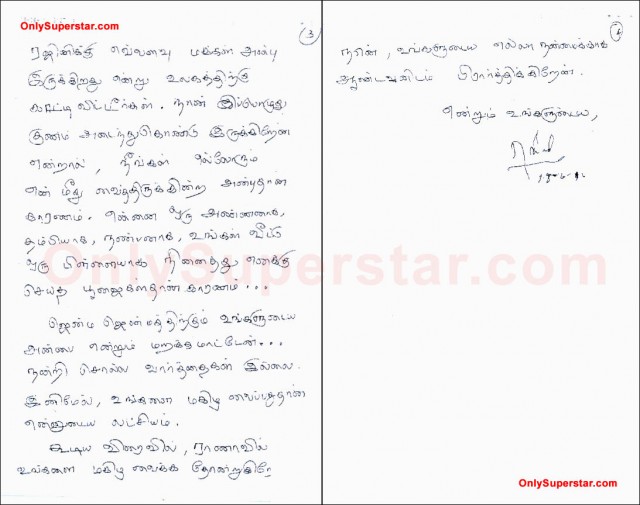 OnlySuperstar.com
3
ரஜினிக்கு எவ்வளவு மக்கள் அன்பு
இருக்கிறது என்று உலகத்திற்கு
காட்டி விட்டீர்கள். நான் இப்பொழுது
குணம் அடைந்துகொண்டு இருக்கிறேன்
என்றால், நீங்கள் எல்லோரும்
என் மீது வைத்திருக்கின்ற அன்புதான்
காரணம். என்னை ஒரு அண்ணனாக,
தம்பியாக, நண்பனாக, உங்கள் வீட்டு
ஒரு பிள்ளையாக நினைத்து எனக்கு
செய்த பூஜைகள்தான் காரணம்...
ஜென்ம ஜென்மத்திற்கும் உங்களுடைய
அன்பை என்றும் மறக்கமாட்டேன்...
நன்றி சொல்ல வார்த்தைகள் இல்லை.
இனிமேல், உங்களை மகிழ வைப்பதுதான்
என்னுடைய லட்சியம்.
கூடிய விரைவில், ராணாவில்
உங்களை மகிழ வைக்க தோன்றுகிறே
OnlySuperstar.com
நான், உங்களுடைய எல்லா நன்மைக்காக
ஆண்டவனிடம் பிரார்த்திக்கிறேன்.
என்றும் உங்களுடைய,
OnlySuperstar.com
OnlySuperstar.com